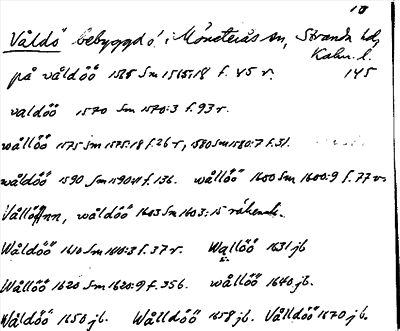 10
Våldö bebyggd ö i Mönsterås sn, Stranda hd,
Kalm. l.
på våldöö 1535 Sm 1535:18 f. 45 r. 145
valdöö 1570 Sm 1570:3 f. 93 r.
wållöö 1575 Sm 1575:18 f. 26 r, 1580 Sm 1580:7 f. 31.
wåldöö 1590 Sm 1590:4 f. 136. wållöö 1600 Sm 1600:9 f. 77 v.
wåldöö 1603 Sm 1603:15 räkensk.
Wåldöö 1610 Sm 1610:3 f. 37 r. Wallöö 1631 jb
Wållöö 1620 Sm 1620:9 f. 356. wållöö 1640 jb.
Wåldöö 1650 jb. Wålldöö 1658 jb. Välldöö 1670 jb.